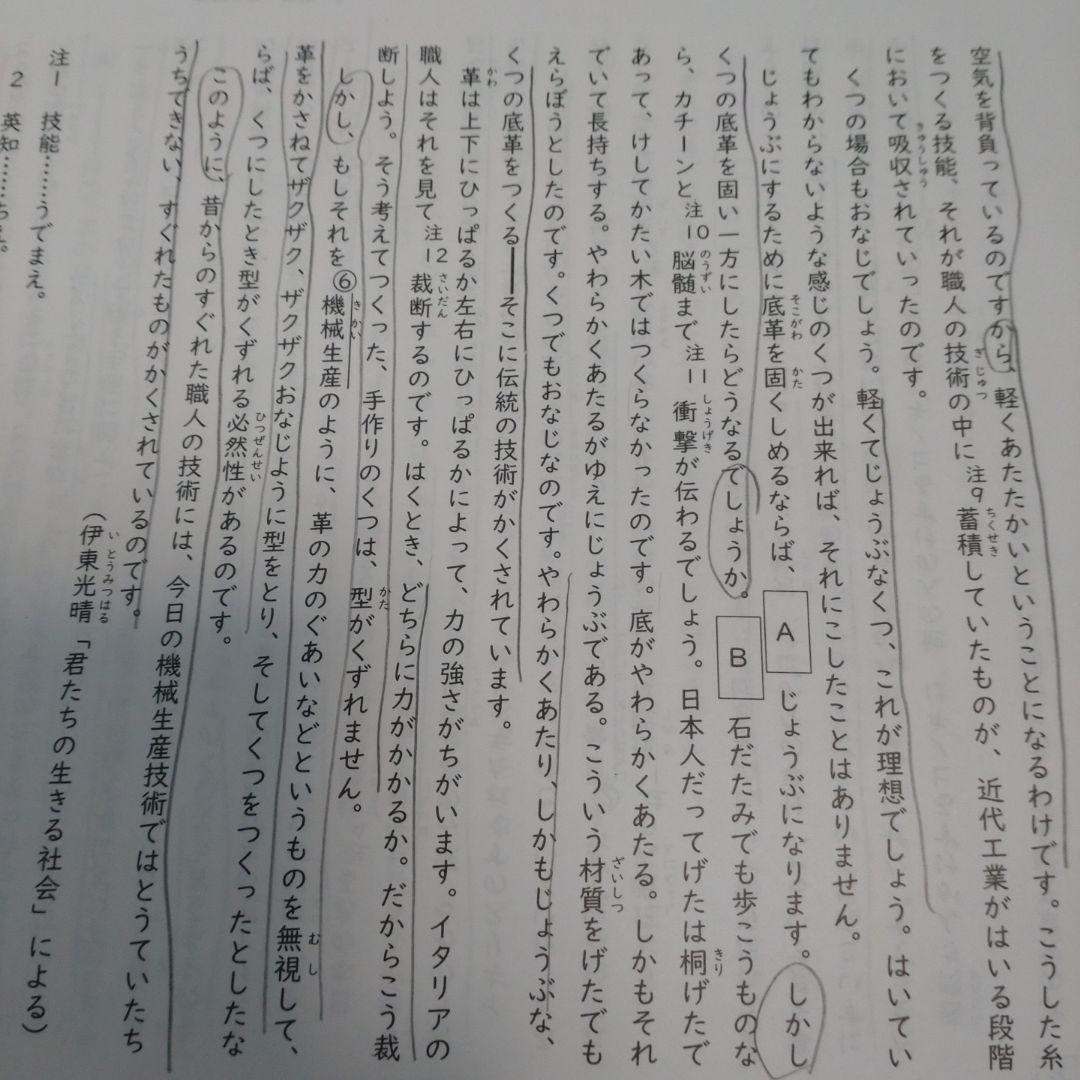 空気を背負っているのですから、軽くあたたかいということになるわけです。こうした糸
をつくる技能、それが職人の技術の中に注9蓄積していたものが、近代工業がはいる段階
において吸収されていったのです。
くつの場合もおなじでしょう。軽くてじょうぶなくつ、これが理想でしょう。はいてい
てもわからないような感じのくつが出来れば、それにこしたことはありません。
じょうぶにするために底革を固くしめるならば、A じょうぶになります。しかし
くつの底革を固い一方にしたらどうなるでしょうか。B 石だたみでも歩こうものな
ら、カチーンと注10脳髄まで注11衝撃が伝わるでしょう。日本人だってげたは桐げたで
あって、けしてかたい木ではつくらなかったのです。底がやわらかくあたる。しかもそれ
でいて長持ちする。やわらかくあたるがゆえにじょうぶである。こういう材質をげたでも
えらぼうとしたのです。くつでもおなじなのです。やわらかくあたり、しかもじょうぶな、
くつの底革をつくる――そこに伝統の技術がかくされています。
革は上下にひっぱるか左右にひっぱるかによって、力の強さがちがいます。イタリアの
職人はそれを見て注12裁断するのです。はくとき、どちらに力がかかるか。だからこう裁
断しよう。そう考えてつくった、手作りのくつは、型がくずれません。
しかし、もしそれを⑥機械生産のように、革の力のぐあいなどというものを無視して、
革をかさねてザクザク、ザクザクおなじように型をとり、そしてくつをつくったとしたな
らば、くつにしたとき型がくずれる必然性があるのです。
このように、昔からのすぐれた職人の技術には、今日の機械生産技術ではとうていたち
うちできない、すぐれたものがかくされているのです。
（伊東光晴「君たちの生きる社会」による）
注1 技能……うでまえ。
2 英知……ちえ。